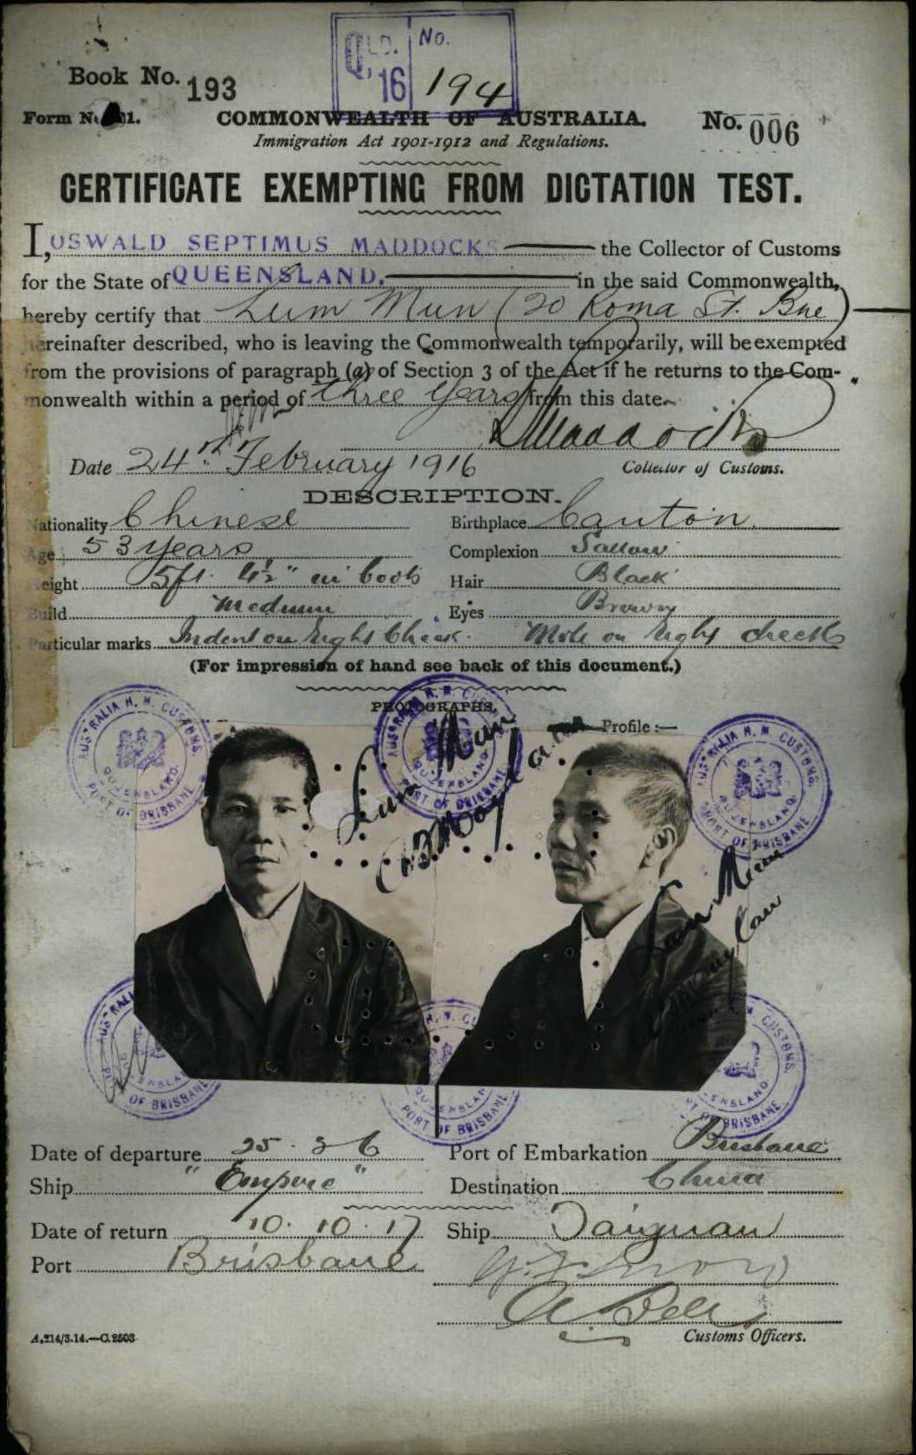 QLD. No.
Q, 16 194
Book No. 193
Form No. 21. COMMONWEALTH OF AUSTRALIA. No. 006
Immigration Act 1901-1912 and Regulations.
CERTIFICATE EXEMPTING FROM DICTATION TEST.
I, OSWALD SEPTIMUS MADDOCKS the Collector of Customs
for the State of QUEENSLAND. in the said Commonwealth,
hereby certify that Lum Mun (20 Roma St. Bne)
hereinafter described, who is leaving the Commonwealth temporarily, will be exempted
from the provisions of paragraph (a) of Section 3 of the Act if he returns to the Com-
monwealth within a period of three years from this date.
Maddocks
Date 24th February 1916 Collector of Customs.
DESCRIPTION.
Nationality Chinese Birthplace Canton.
Age 53 years Complexion Sallow
Height 5ft. 4½" in boots Hair Black
Build Medium Eyes Brown
Particular marks Indent on right Cheek. Mole on right cheek
(For impression of hand see back of this document.)
PHOTOGRAPHS.
Profile :—
AUSTRALIA H. M. CUSTOMS. QUEENSLAND. PORT OF BRISBANE
AUSTRALIA H. M. CUSTOMS. QUEENSLAND. PORT OF BRISBANE
AUSTRALIA H. M. CUSTOMS. QUEENSLAND. PORT OF BRISBANE
Lum Mun
Lum Mun
OF BRISBANE
PORT OF BRISBANE
CUSTOMS. BRISBANE
Date of departure 25. 2. 16 Port of Embarkation Brisbane
Ship "Empire" Destination China
Date of return 10. 10. 17 Ship Taiyuan
Port Brisbane
Customs Officers.
A.214/3.14.—C.2503